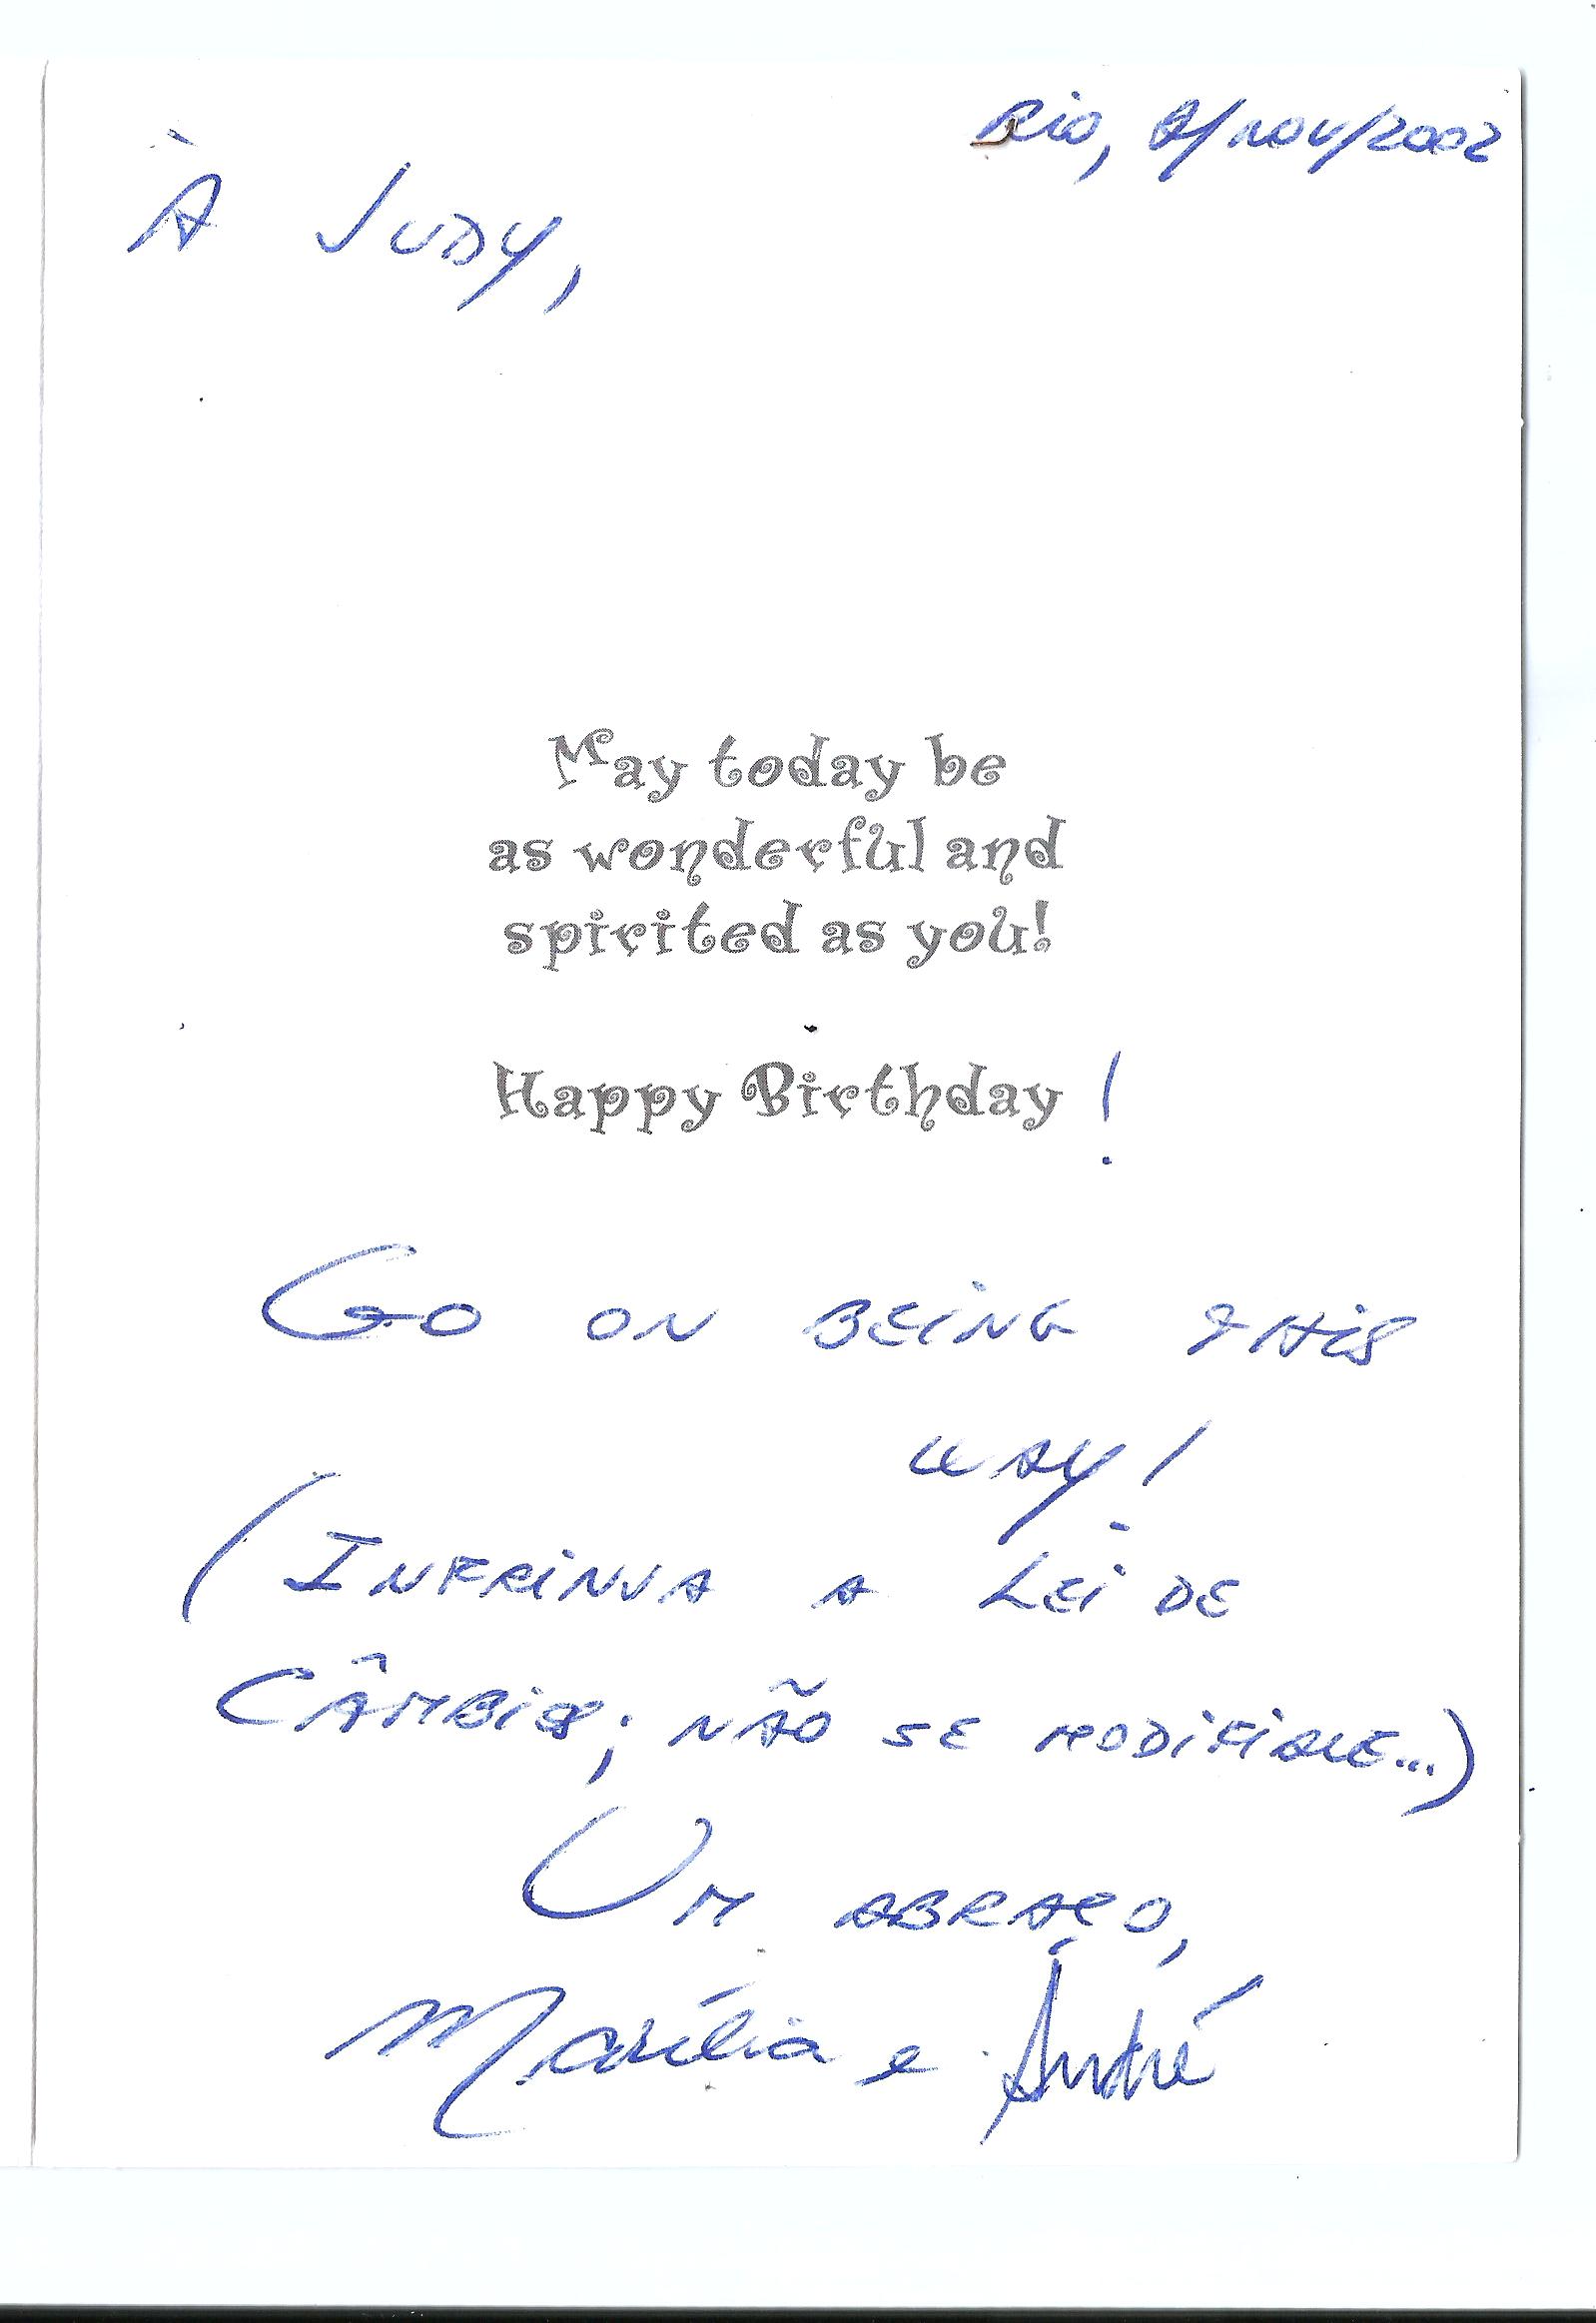 Rio, /NOV/2002
À JUDY,
May today be
as wonderful and
spirited as you!
Happy Birthday!
GO ON BEING THIS
WAY!
(INFRINJA A LEI DE
CÂMBIO; NÃO SE MODIFIQUE...)
UM ABRAÇO,
Marília e André